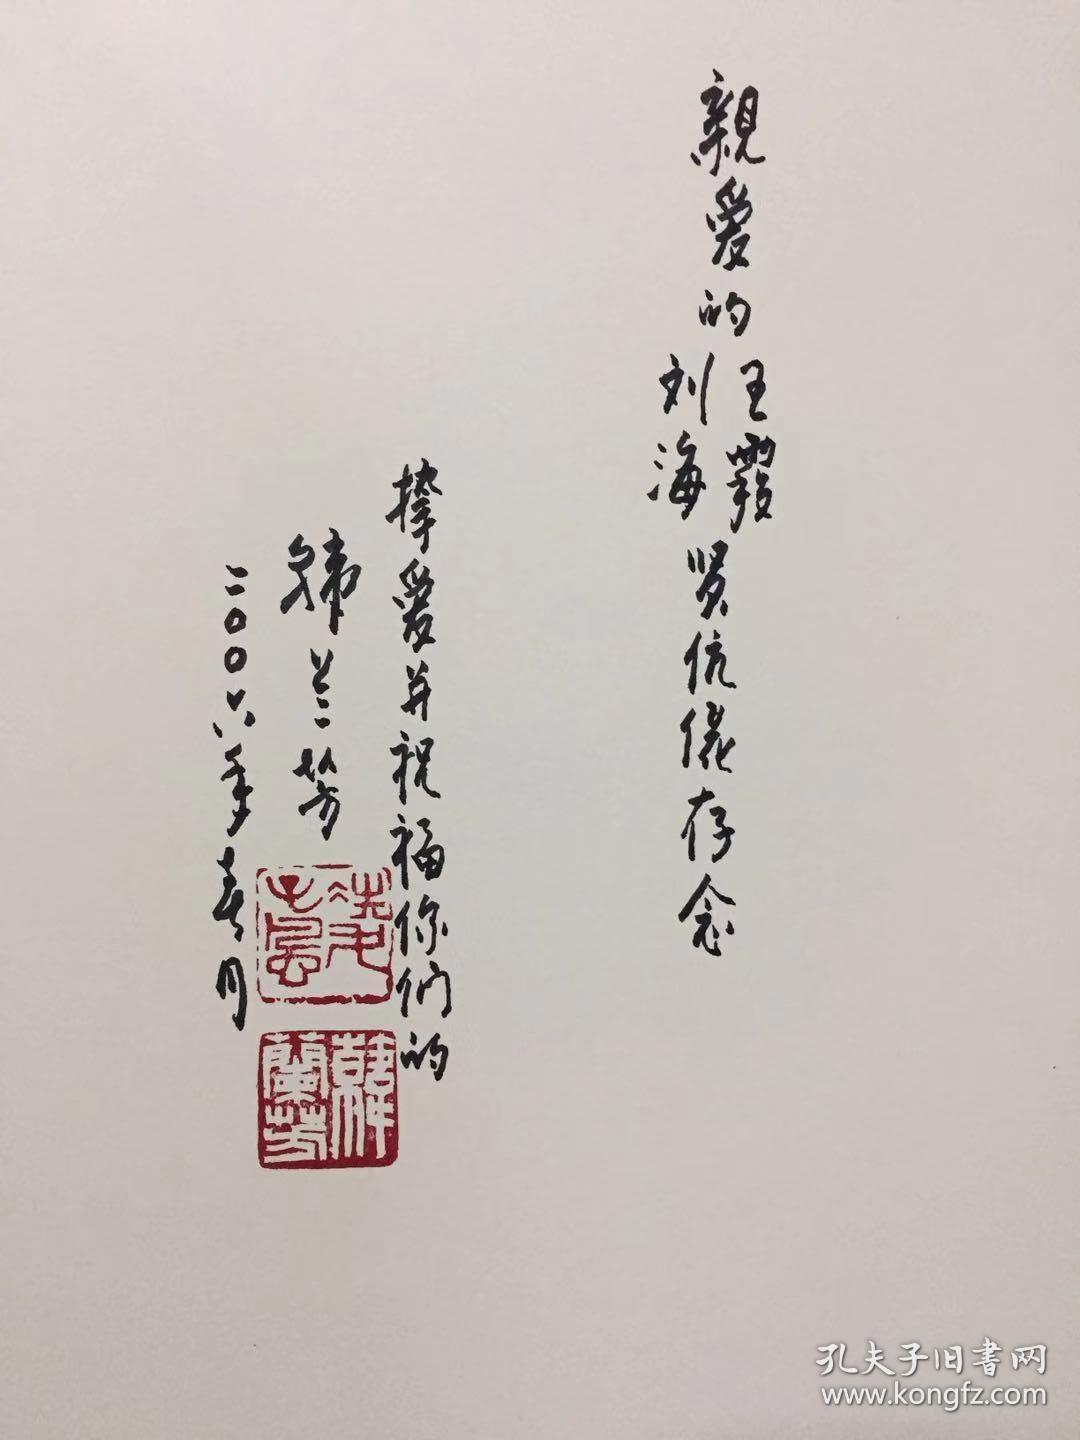 親爱的
王霞
刘海
贤伉俪存念
挚爱并祝福你们的
韩兰芳
二〇〇六年春月
韓蘭芳
孔夫子旧書网
www.kongfz.com